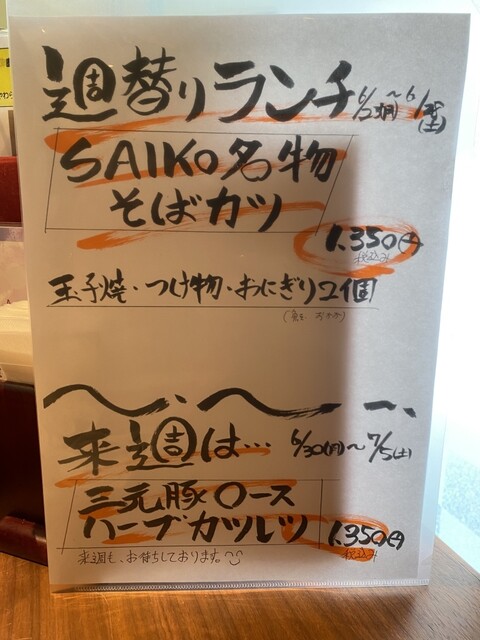 週替りランチ 6/23(月)~6/28(土)
SAIKO名物
そばカツ
1.350円
税込み
玉子焼・つけ物・おにぎり2個
(鮭 おかか)
来週は… 6/30(月)~7/5(土)
三元豚ロース
ハーブカツレツ
1.350円
税込み
来週も、お待ちしております。